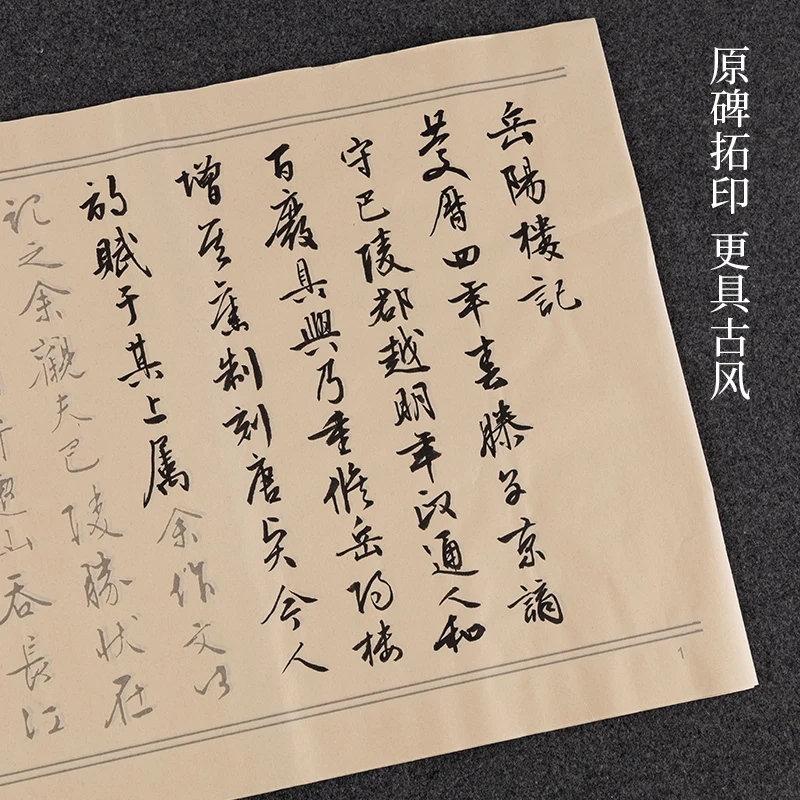 原碑拓印 更具古风
岳陽樓記
慶曆四年春滕子京謫
守巴陵郡越明年政通人和
百廢具興乃重修岳陽楼
增其舊制刻唐賢今人
詩賦于其上屬余作文以
記之余觀夫巴陵勝狀在
遠山吞長江
1